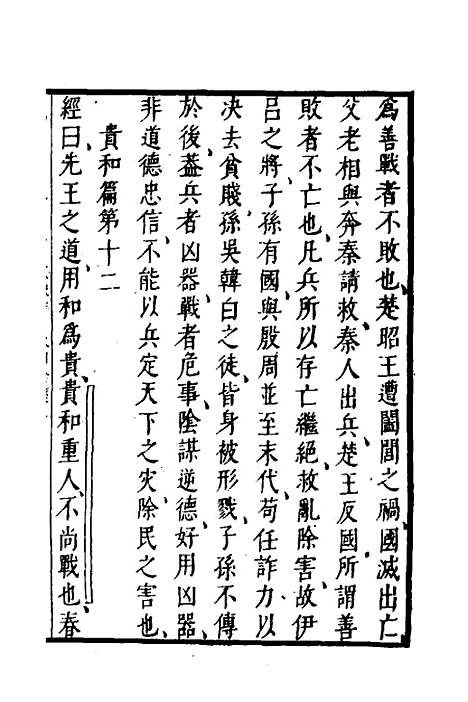 為善戰者不敗也楚昭王遭闔閭之禍國滅出亡
父老相與奔秦請救秦人出兵楚王反國所謂善
敗者不亡也凡兵所以存亡繼絕救亂除害故伊
呂之將子孫有國與殷周並至末代苟任詐力以
決去貧賤孫吳韓白之徒皆身被形戮子孫不傳
於後葢兵者凶器戰者危事陰謀逆德好用凶器
非道德忠信不能以兵定天下之灾除民之害也
貴和篇第十二
經曰先王之道用和為貴貴和重人不尚戰也春